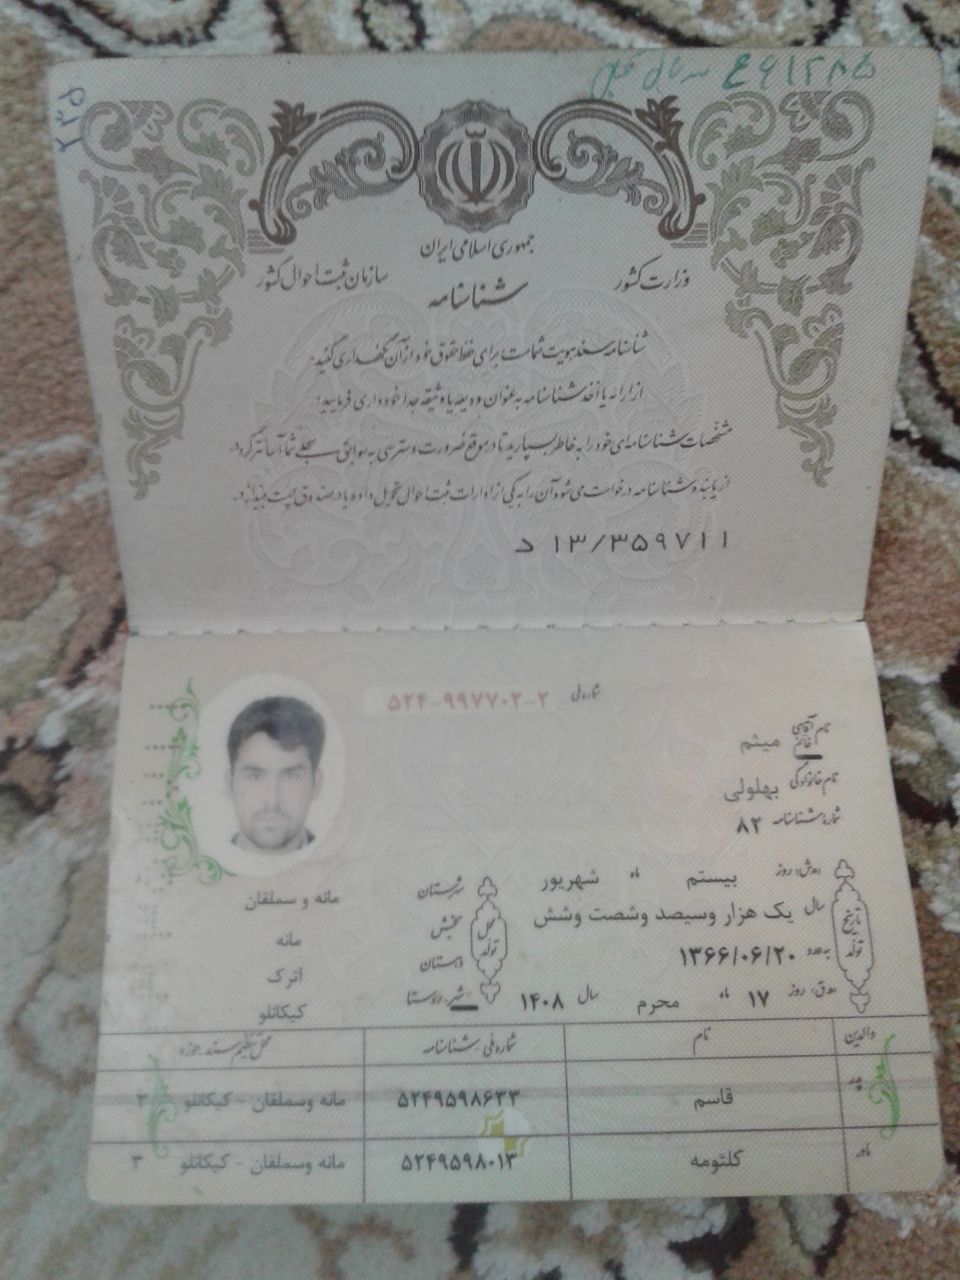 ۲۳۵
ع ۶۱۲۸۵
جمهوری اسلامی ایران
وزارت کشور
سازمان ثبت احوال کشور
شناسنامه
شناسنامه سند هویت شماست برای حفظ حقوق خود از آن نگهداری کنید.
از ارائه یا اخذ شناسنامه به عنوان ودیعه یا وثیقه جداً خودداری فرمایید.
مشخصات شناسنامه‌ای خود را به خاطر بسپارید تا در مواقع ضرورت دسترسی به سوابق سجلی شما آسانتر گردد.
از یابنده شناسنامه درخواست می‌شود آن را به یکی از ادارات ثبت احوال تحویل داده یا در صندوق پست بیندازد.
د ۱۳/۳۵۹۷۱۱
شماره ملی ۵۲۴-۹۹۷۷۰۲-۲
نام آقای خانم میثم
نام خانوادگی بهلولی
شماره شناسنامه ۸۲
تاریخ تولد
ه‍.ش: روز بیستم ماه شهریور
سال یک هزار وسیصد وشصت وشش
به عدد ۱۳۶۶/۰۶/۲۰
ه‍.ق: روز ۱۷ ماه محرم سال ۱۴۰۸
محل تولد
شهرستان مانه و سملقان
بخش مانه
دهستان اترک
شهر-روستا کیکانلو
والدین نام شماره ملی-شناسنامه محل تنظیم سند حوزه
پدر قاسم ۵۲۴۹۵۹۸۶۳۳ مانه وسملقان - کیکانلو ۲
مادر کلثومه ۵۲۴۹۵۹۸۰۱۳ مانه وسملقان - کیکانلو ۳